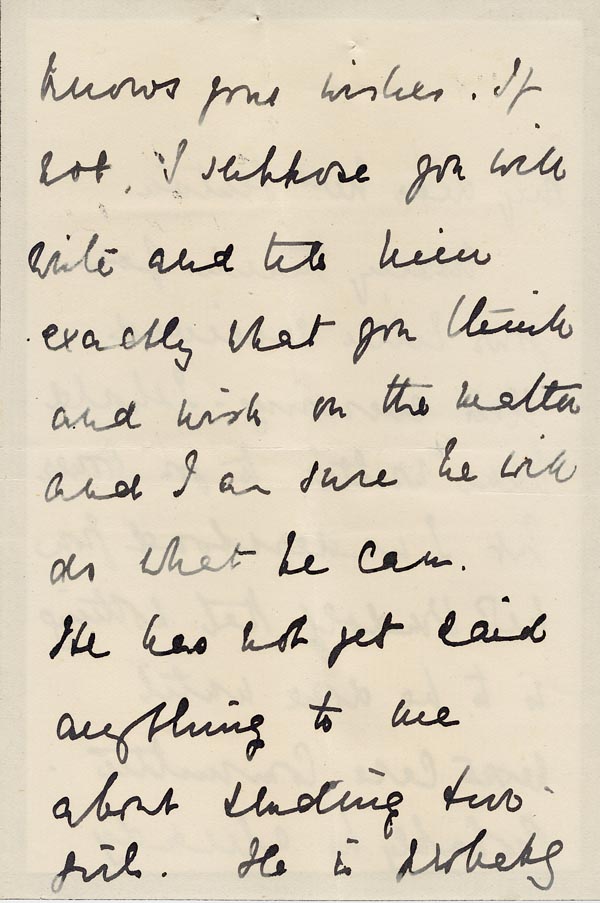 knows your wishes. If
not, I suppose you will
write and tell him
exactly what you think
and wish on the matter
and I am sure he will
do what he can.
He has not yet said
anything to me
about sending two
girls. He is probably